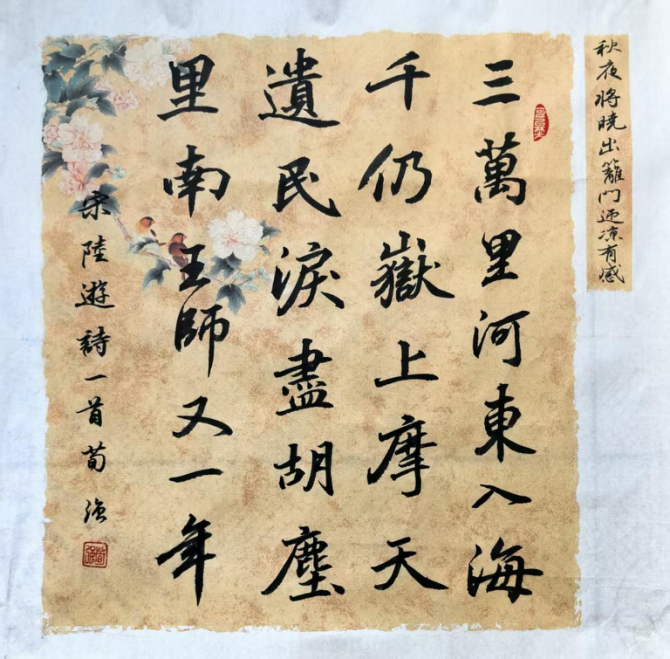 秋夜将晓出籬门迎凉有感
三萬里河東入海
千仍嶽上摩天
遺民淚盡胡塵
里南王師又一年
宋陸遊詩一首荀强